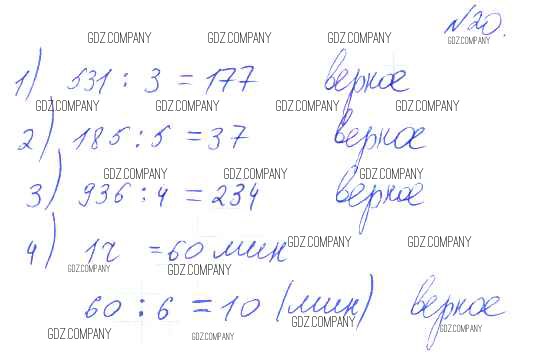 №20.
GDZ.COMPANY GDZ.COMPANY GDZ.COMPANY GDZ.COMPANY
1) 531 : 3 = 177 верное
GDZ.COMPANY GDZ.COMPANY GDZ.COMPANY GDZ.COMPANY
2) 185 : 5 = 37 верное
GDZ.COMPANY GDZ.COMPANY GDZ.COMPANY
3) 936 : 4 = 234 верное
4) 1ч = 60 мин
GDZ.COMPANY GDZ.COMPANY
GDZ.COMPANY GDZ.COMPANY
60 : 6 = 10 (мин) верное
GDZ.COMPANY GDZ.COMPANY GDZ.COMPANY GDZ.COMPANY